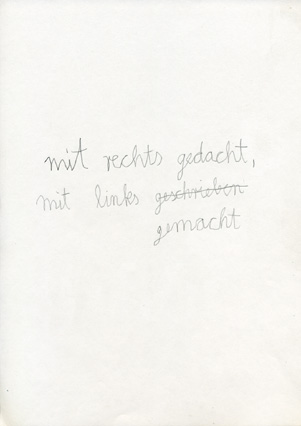 mit rechts gedacht,
mit links geschrieben
gemacht